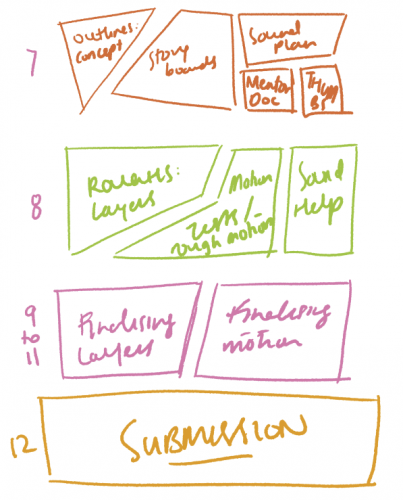 7
Outlines:
Concept
Story
boards
Sound
plan
Mentor
Doc
Thum
bs
8
Roughs:
Layers
Motion
tests /
rough motion
Sound
Help
9
to
11
Finalising
Layers
Finalising
motion
12
SUBMISSION